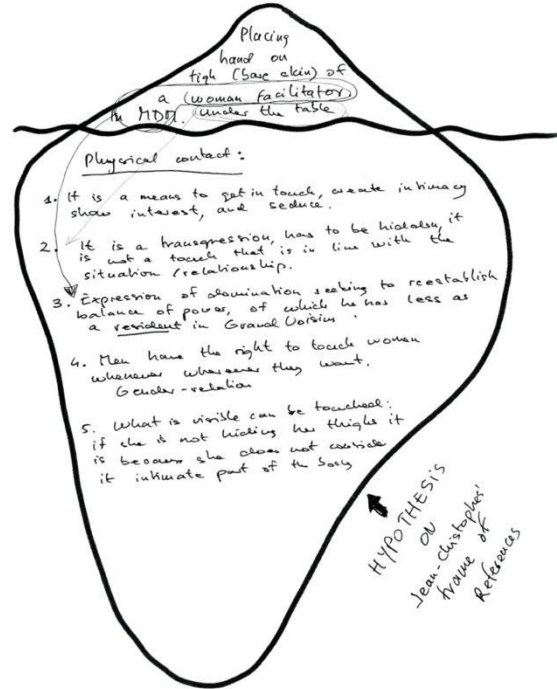 Placing
hand on
tigh (bare skin) of
a (woman facilitator)
in MDM. Under the table
Physical contact:
1. It is a means to get in touch, create intimacy
show interest, and seduce.
2. It is a transgression, has to be hidden, it
is not a touch that is in line with the
situation / relationship.
3. Expression of domination seeking to reestablish
balance of power, of which he has less as
a resident in Grand Voisins
4. Men have the right to touch women
whenever wherever they want.
Gender-relation
5. What is visible can be touched:
if she is not hiding her thighs it
is because she does not consider
it intimate part of the body
HYPOTHESIS
ON
Jean-Christophes'
frame of
References